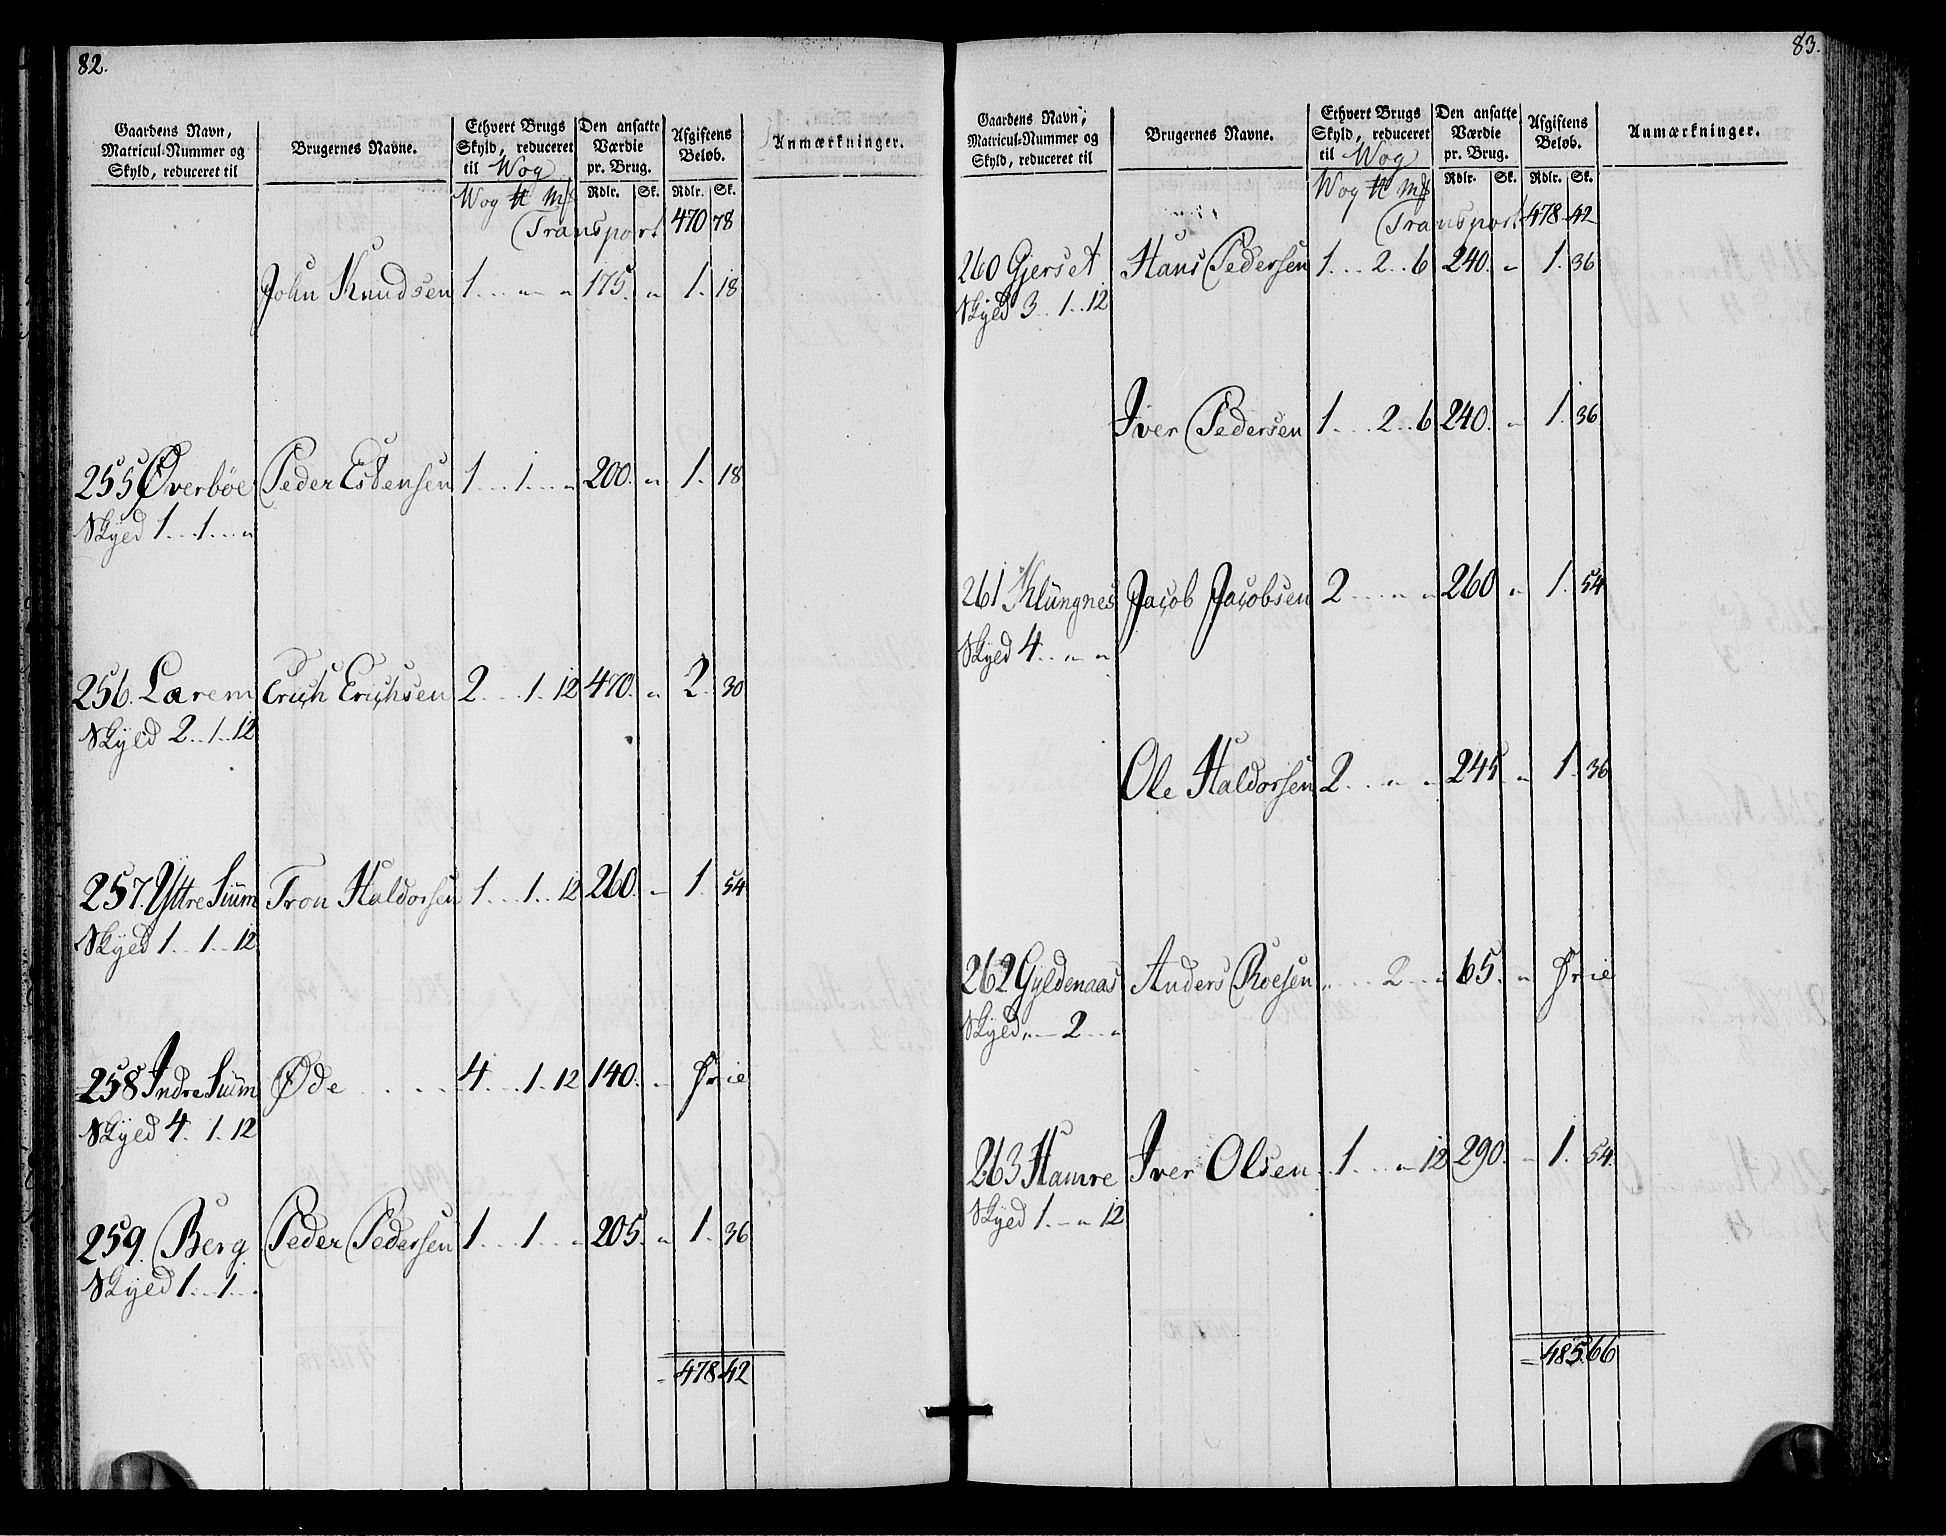 82.
Gaardens Navn, Matricul-Nummer og Skyld, reduceret til | Brugernes Navne. | Ethvert Brugs Skyld, reduceret til Wog | Den ansatte Værdie pr. Brug. | Afgiftens Beløb. | Anmærkninger.
Wog ℔ Mk | Rdlr. | Sk. | Rdlr. | Sk.
Transport 470 78
John Knudsen 1 . . . „ „ 175. „ 1. 18
255 Øverbøe Peder Estensen 1 . . . 1 . . . „ 200. „ 1. 18
Skyed 1 . . . 1 . . . „
256. Larem Erich Erichsen 2 . . . 1 . 12 470. „ 2. 30
Skyld 2 . . 1 . . 12
257. Yttre Siüm Tron Haldorsen 1 . . . 1 . . 12 260. „ 1. 54
Skyed 1 . . 1 . . 12
258 Indre Siüm Øde . . . 4 . . . 1 . 12 140. „ Frie
Skyed 4 . 1 . 12
259. Berg Peder Pedersen 1 . . . 1 . . „ 205. „ 1. 36
Skyed 1 . . 1 . .
= 478 42
83.
Gaardens Navn, Matricul-Nummer og Skyld, reduceret til | Brugernes Navne. | Ethvert Brugs Skyld, reduceret til Wog | Den ansatte Værdie pr. Brug. | Afgiftens Beløb. | Anmærkninger.
Wog ℔ Mk | Rdlr. | Sk. | Rdlr. | Sk.
Transport 478 42
260 Gjerset Hans Pedersen 1 . . . 2 . . 6 240. „ 1. 36
Skyed 3 . . 1 . . 12
Iver Pedersen 1 . . . 2 . . 6 240. „ 1. 36
261 Klüngnes Jacob Jacobsen 2 . . . „ „ 260 „ 1. 54
Skyed 4 . . „ „
Ole Haldorsen 2 . . . „ „ 245 „ 1. 36
262 Gyldenaas Anders Roesen „ . . . 2 . . „ 65. „ Frie
Skyed „ — 2 . . „
263 Hamre Iver Olsen 1 . . . „ 12 290. „ 1. 54.
Skyed 1 . — „ 12
= 485. 66